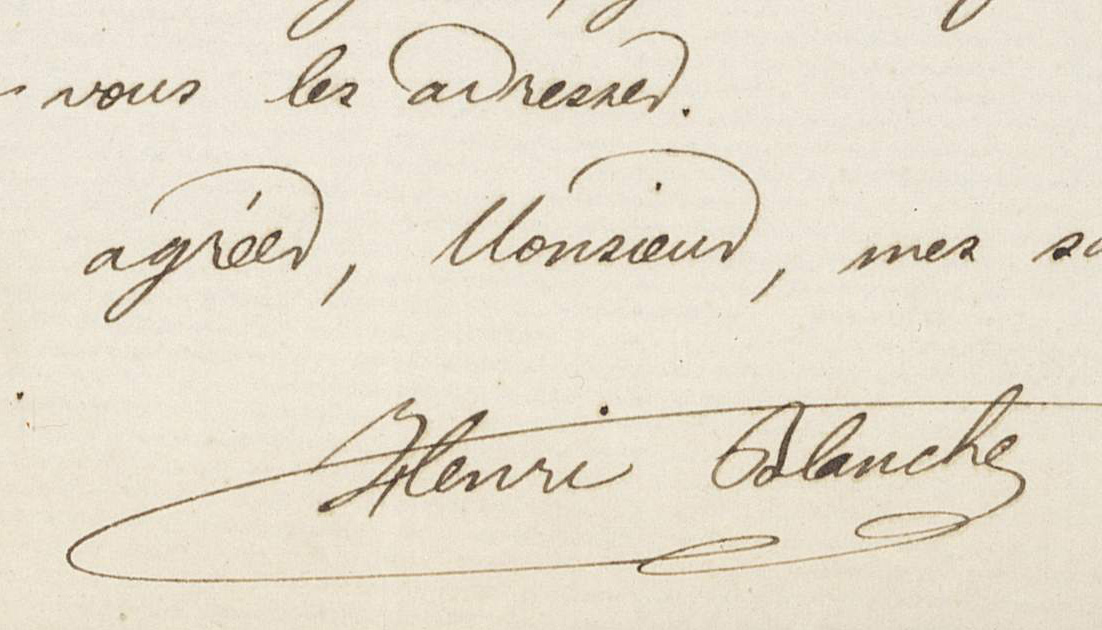 vous les adresser.
agréer, Monsieur, mes
Henri Blanche